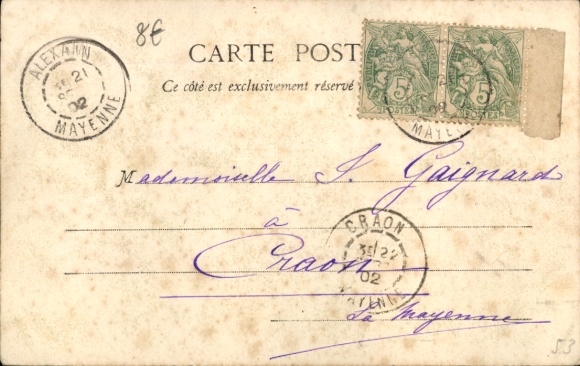 8€
CARTE POST
Ce côté est exclusivement réservé
5 5
POSTES POSTES
21
02
MAYENNE
02
MAYENNE
Mademoiselle S. Gaignard
à
Craon
CRAON
22
02
MAYENNE
La Mayenne
53